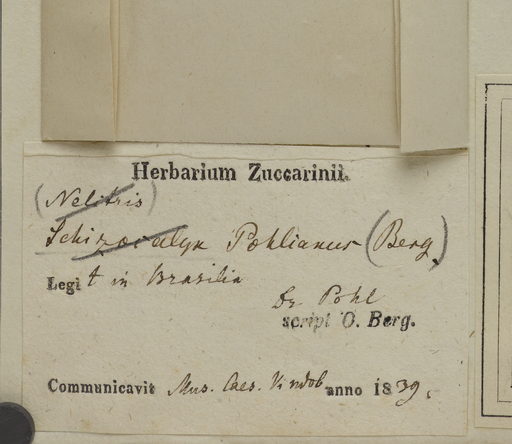 Herbarium Zuccarinii.
(Nelitris)
Schizocalyx Pohlianus (Berg)
Legit in Brasilia
Dr Pohl
scripl O. Berg.
Communicavit Mus. Caes. Vindob. anno 1839.